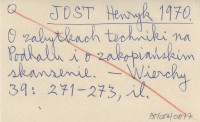 Q JOST Henryk 1970.
O zabytkach techniki na
Podhalu i o zakopiańskim
skansenie. — Wierchy
39: 271-273, il.